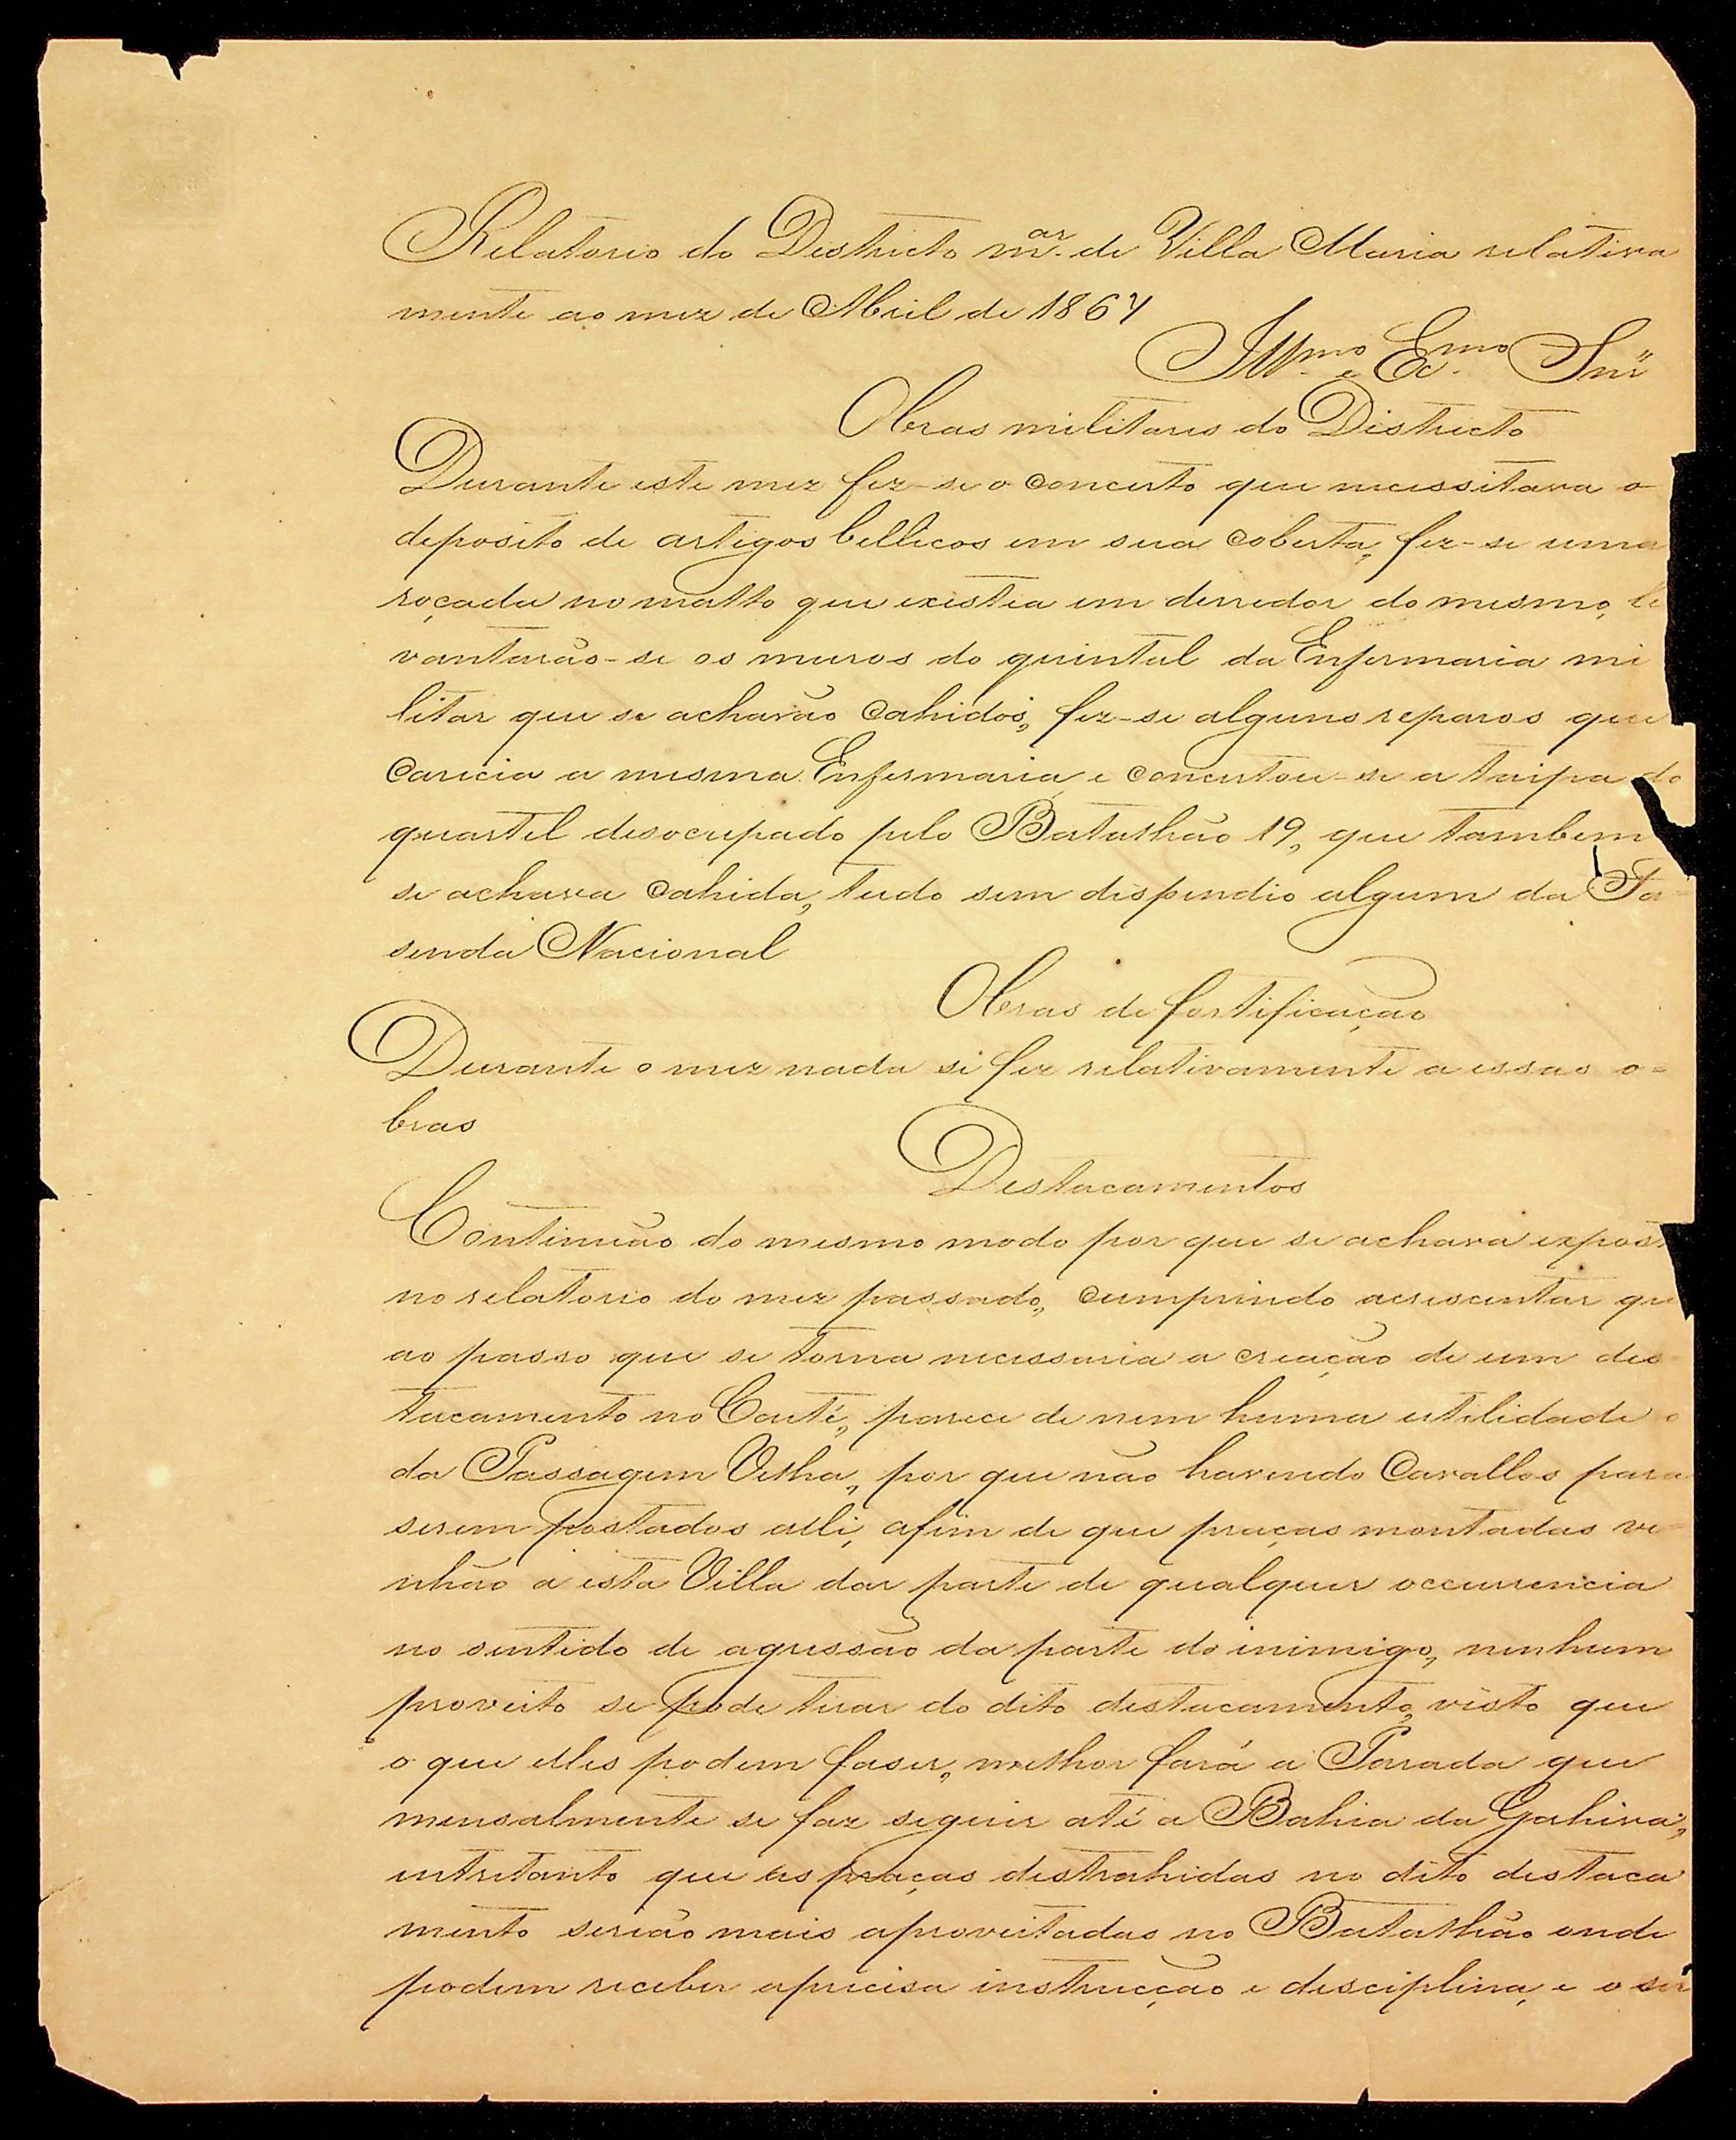 Relatorio do Districto m.ar de Villa Maria relativa
mente ao mez de Abril de 1867
Illmo e Exmo Snr
Obras militares do Districto
Durante este mez fez-se o concerto que necessitava o
deposito de artigos bellicos em sua coberta, fez-se uma
roçada no matto que existia em derredor do mesmo, le
vantarão-se os muros do quintal da Enfermaria mi
litar que se acharão cahidos, fez-se alguns reparos que
carecia a mesma Enfermaria, e concertou-se a taipa do
quartel desocupado pelo Batalhão 19, que tambem
se achava cahida, tudo sem dispendio algum da Fa-
senda Nacional
Obras de fortificação
Durante o mez nada se fez relativamente a essas o=
bras
Destacamentos
Continuão do mesmo modo por que se achava expost
no relatorio do mez passado, cumprindo acrescentar que
ao passo que se torna necessaria a creação de um des-
tacamento no parece de nem huma utilidade o
da Passagem Velha, por que não havendo cavallos para
serem postados alli, afim de que praças montadas ve-
nhão a esta Villa dar parte de qualquer occurrencia
no sentido de agressão da parte do inimigo, nenhum
proveito se pode tirar do dito destacamento, visto que
o que elles podem faser, melhor fará a Parada que
mensalmente se faz seguir até a Bahia da Gahiva,
entretanto que as praças destrahidas no dito destaca
mento serião mais aproveitadas no Batalhão onde
podem receber a precisa instrucção e disciplina, e o ser